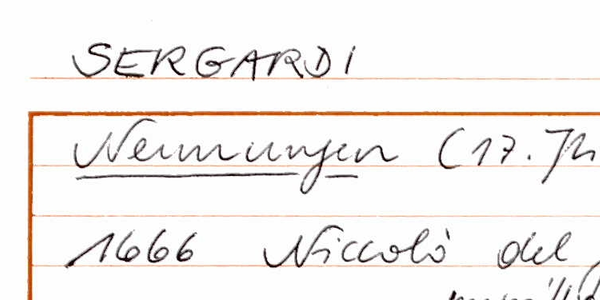 SERGARDI
Nennungen (17. Jh
1666 Niccolò del